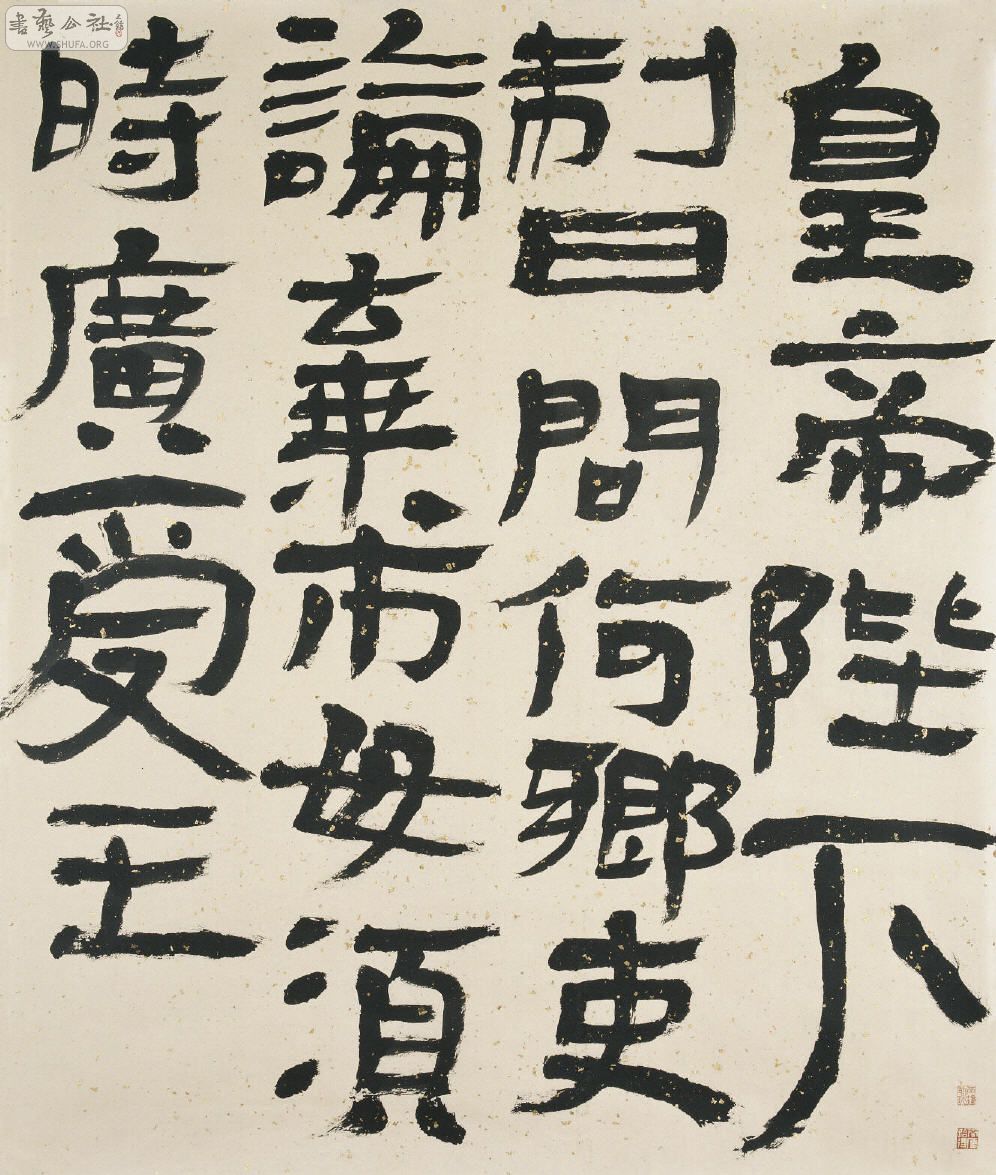 皇帝陛下
制曰問何鄉吏
論棄市毋須
時廣受王
書藝公社
WWW.SHUFA.ORG